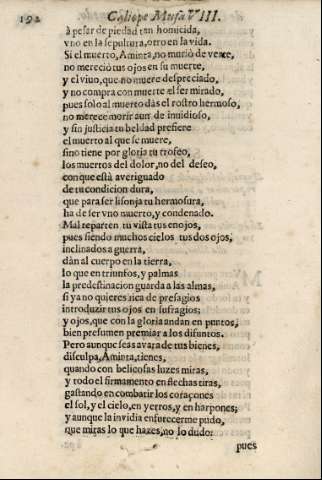 192 Caliope Musa VIII.
à pesar de piedad tan homicida,
vno en la sepultura, otro en la vida.
Si el muerto, Aminta, no murio de verte,
no mereciò tus ojos en su muerte,
y el viuo, que no muere despreciado,
y no compra con muerte el ser mirado,
pues solo al muerto dàs el rostro hermoso,
no merece morir aun de inuidioso,
y sin justicia tu beldad prefiere
el muerto al que se muere,
sino tiene por gloria tu trofeo,
los muertos del dolor, no del deseo,
con que està aueriguado
de tu condicion dura,
que para ser lisonja tu hermosura,
ha de ser vno muerto, y condenado.
Mal reparten tu vista tus enojos,
pues siendo muchos cielos tus dos ojos,
inclinados a guerra,
dàn al cuerpo en la tierra,
lo que en triunfos, y palmas
la predestinacion guarda a las almas,
si ya no quieres rica de presagios
introduzir tus ojos en sufragios;
y ojos, que con la gloria andan en puntos,
bien presumen premiar a los difuntos.
Pero aunque seas auara de tus bienes,
disculpa, Aminta, tienes,
quando con belicosas luzes miras,
y todo el firmamento en flechas tiras,
gastando en combatir los coraçones
el sol, y el cielo, en yerros, y en harpones;
y aunque la inuidia enfurecerme pudo,
que miras lo que hazes, no lo dudo:
pues